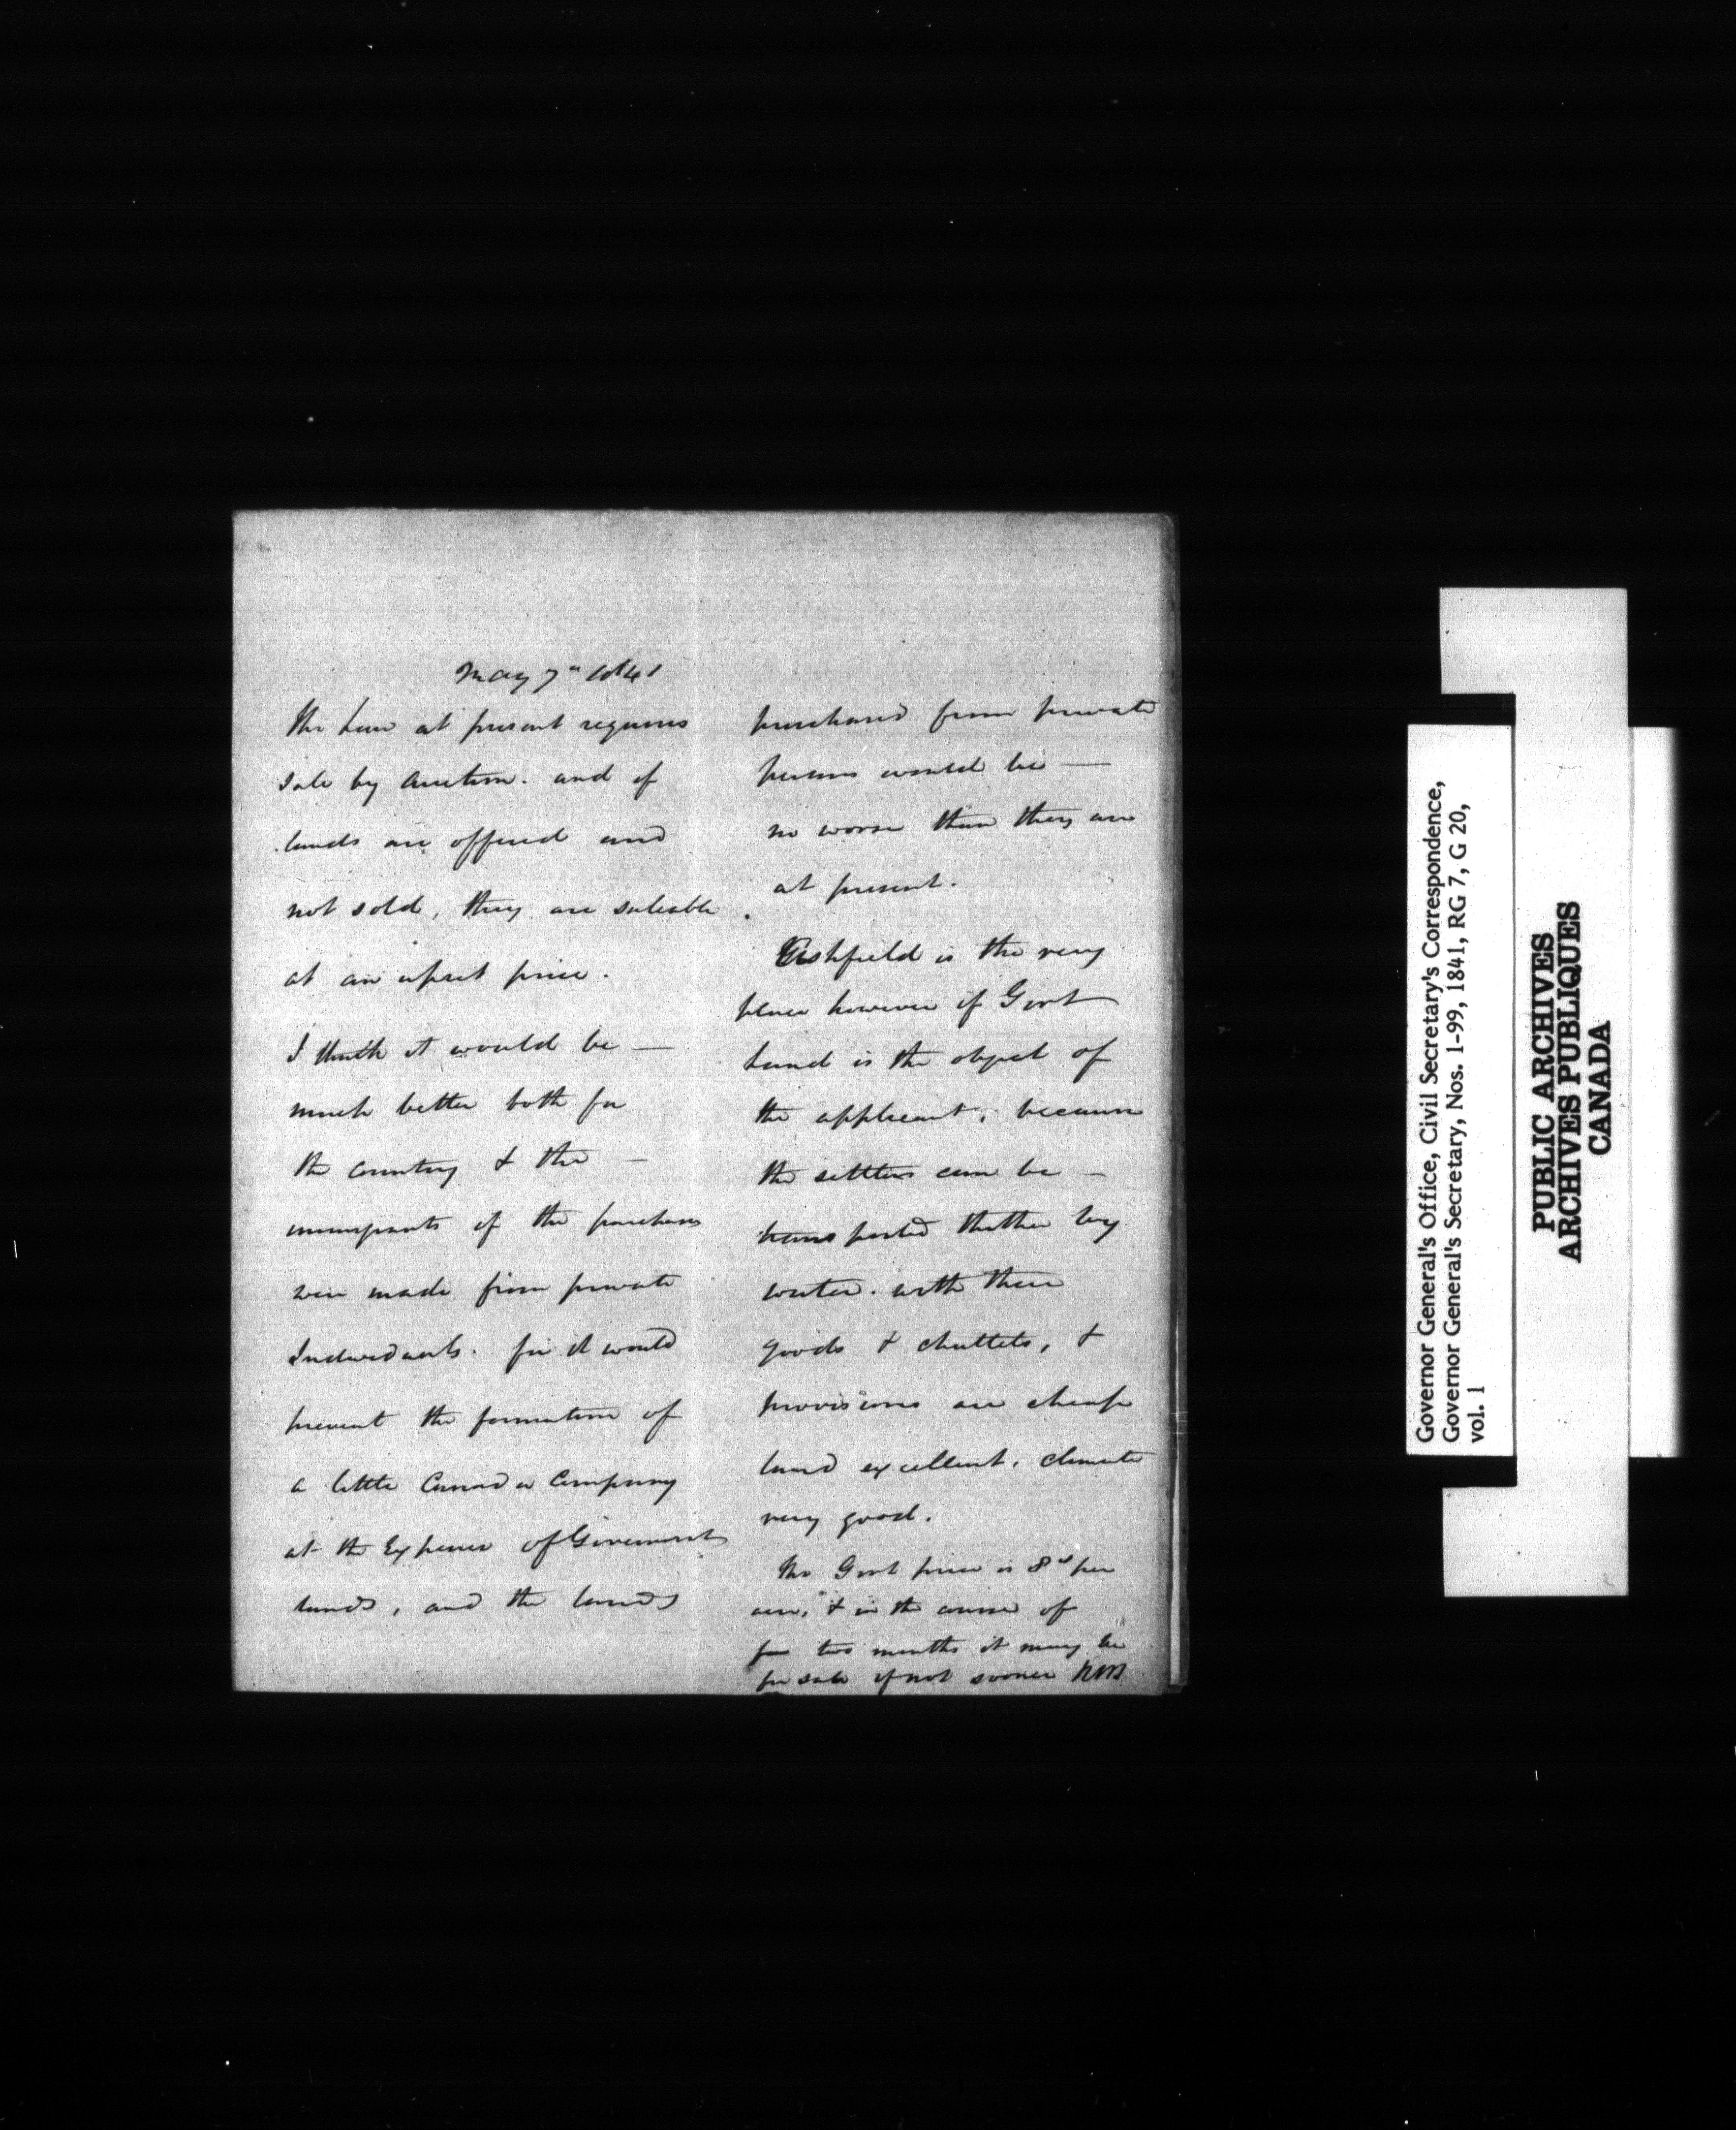 May 7th 1841
The Law at present requires
sale by Auction. and if
lands are offered and
not sold, they are saleable
at an upset price.
I think it would be —
much better both for
the country & the —
immigrants if the purchases
were made from private
Individuals. for it would
prevent the formation of
a little Canada Company
at the Expence of Government
lands, and the lands
purchased from private
persons would be —
no worse than they are
at present.
Ashfield is the very
place however if Govt
Land is the object of
the applicant, because
the settlers can be —
transported thither by
water. with their
goods & chattels, &
provisions are cheap
land excellent. climate
very good.
The Govt price is 8s/ per
acre, & in the course of
two months it may be
for sale if not sooner
Governor General's Office, Civil Secretary's Correspondence,
Governor General's Secretary, Nos. 1-99, 1841, RG 7, G 20,
vol. 1
PUBLIC ARCHIVES
ARCHIVES PUBLIQUES
CANADA